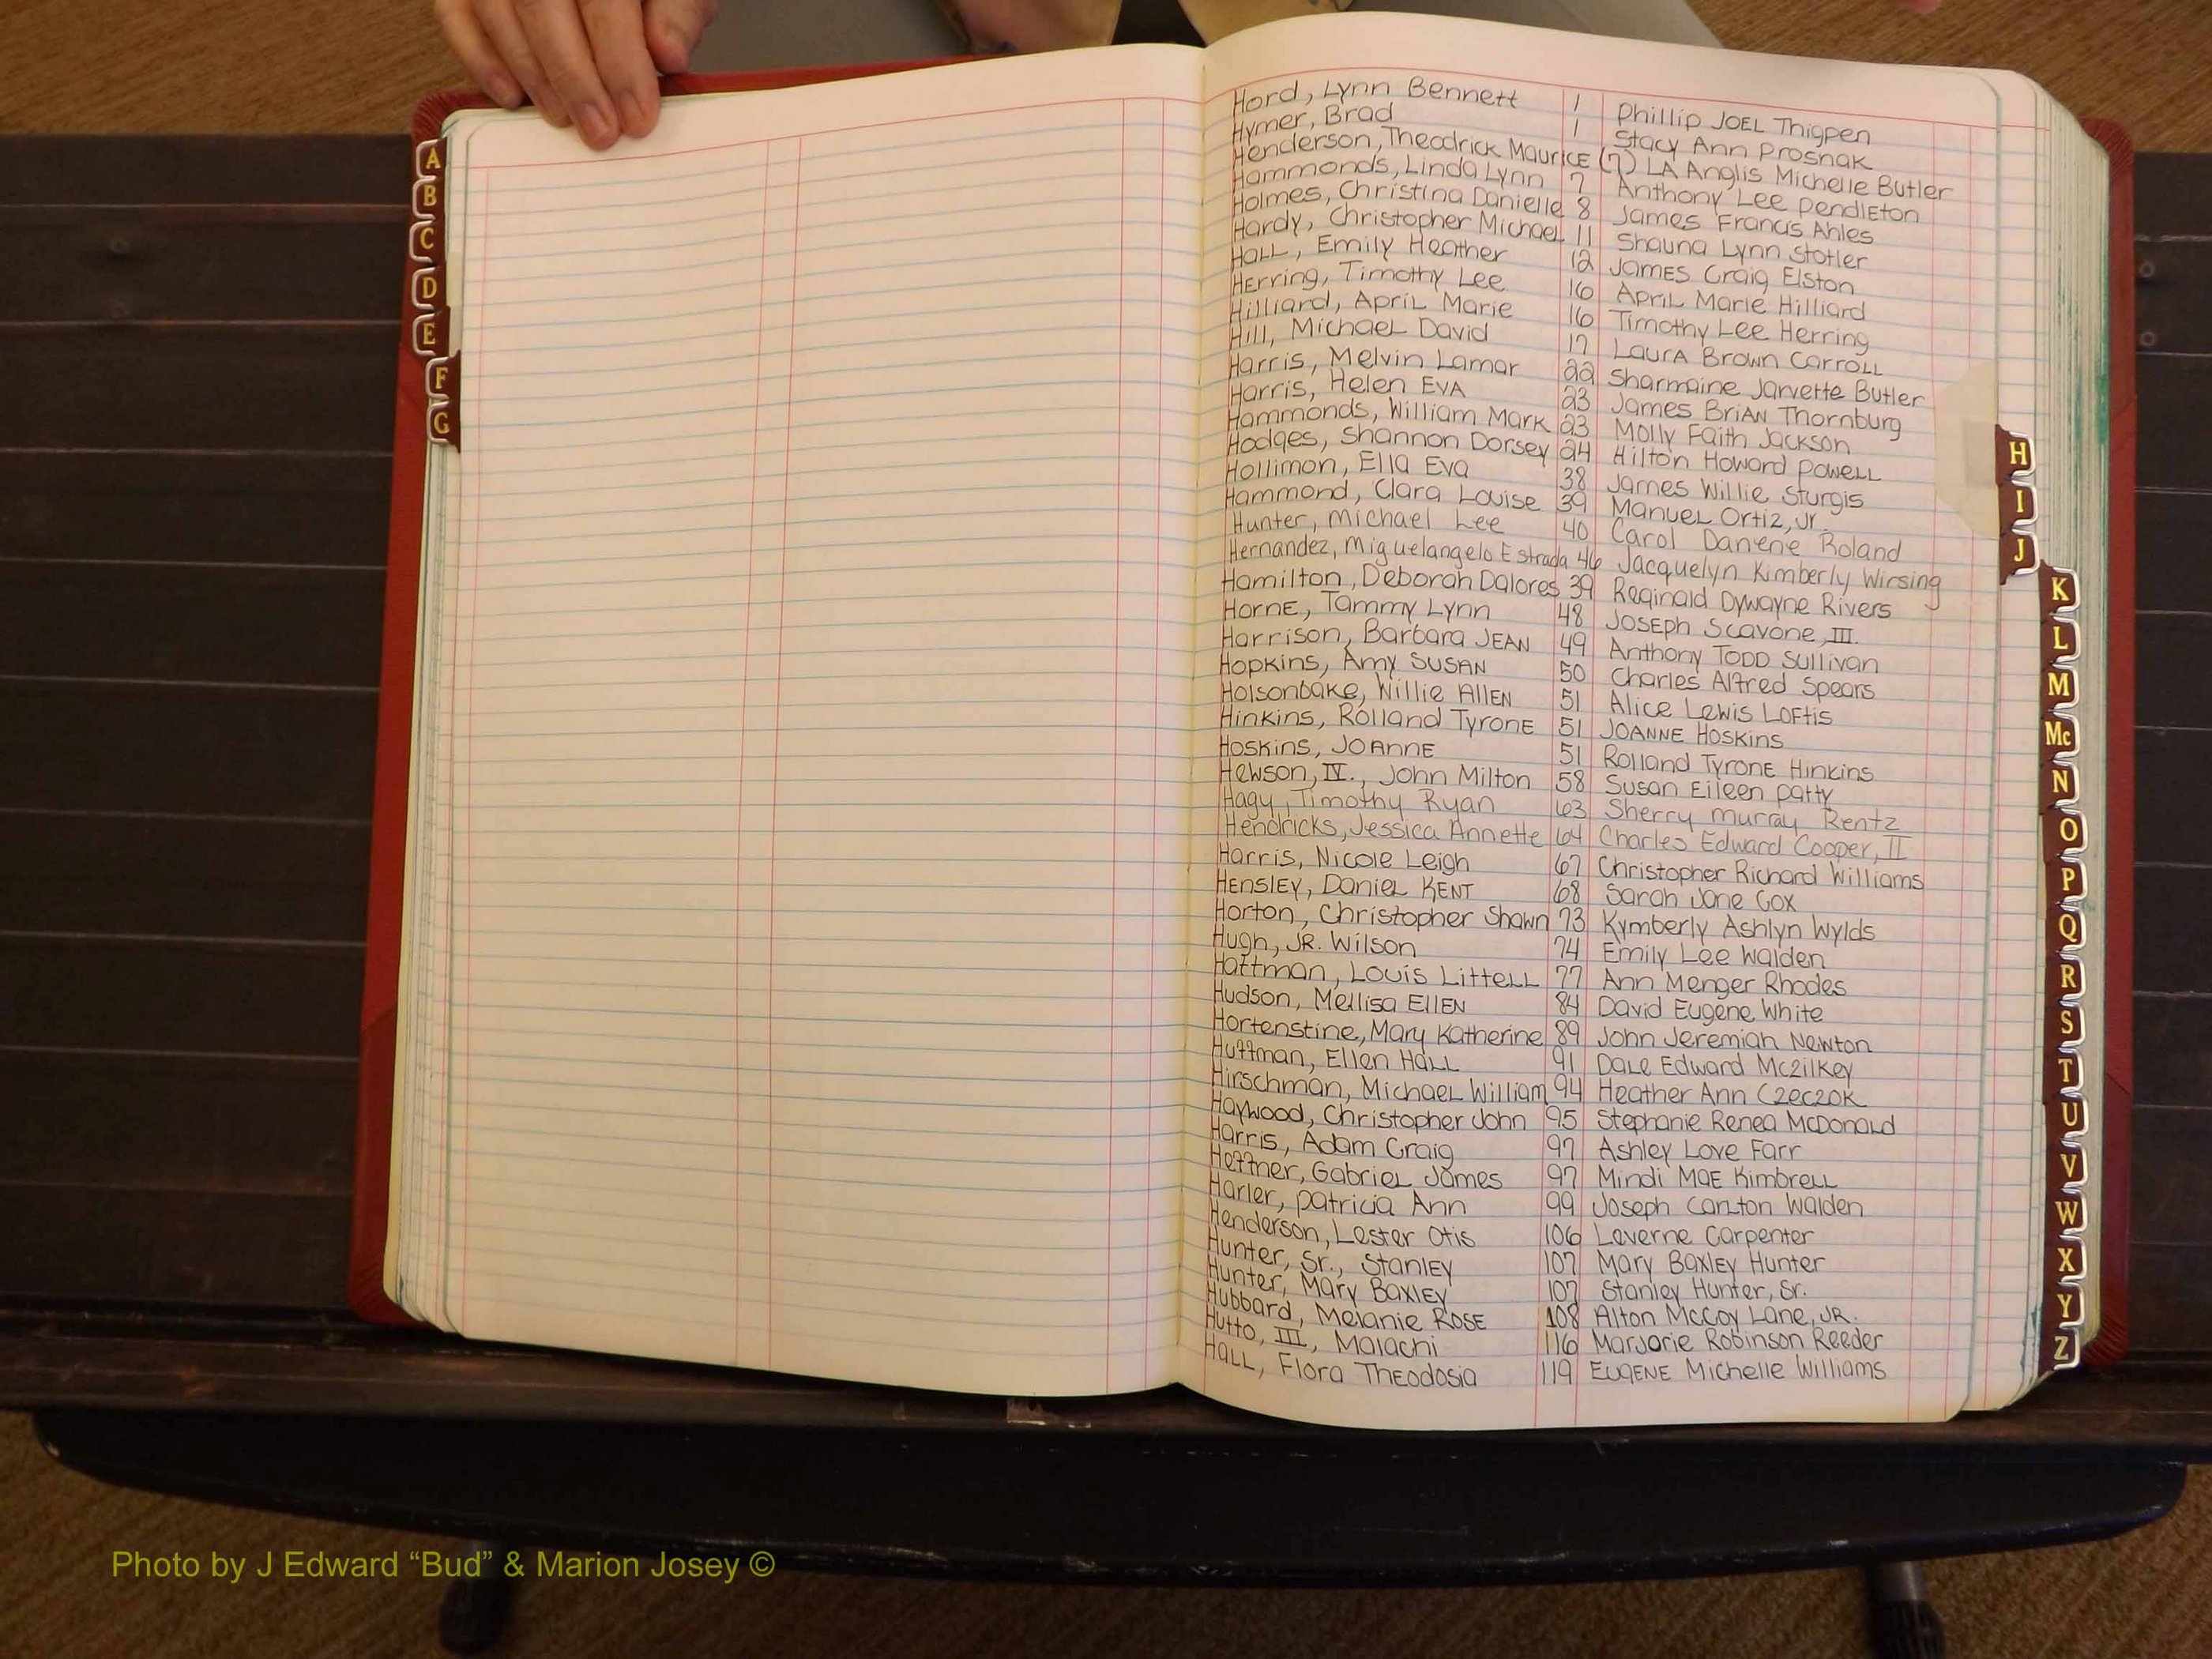 A
B
C
D
E
F
G
Hord, Lynn Bennett 1 Phillip JOEL Thigpen
Hymer, Brad 1 Stacy Ann Prosnak
Henderson, Theodrick Maurice (7) LA Anglis Michelle Butler
Hammonds, Linda Lynn 7 Anthony Lee Pendleton
Holmes, Christina Danielle 8 James Francis Ahles
Hardy, Christopher Michael 11 Shauna Lynn Stotler
Hall, Emily Heather 12 James Craig Elston
Herring, Timothy Lee 16 April Marie Hilliard
Hilliard, April Marie 16 Timothy Lee Herring
Hill, Michael David 17 Laura Brown Carroll
Harris, Melvin Lamar 22 Sharmaine Jarvette Butler
Harris, Helen EVA 23 James Brian Thornburg
Hammonds, William Mark 23 Molly Faith Jackson
Hodges, Shannon Dorsey 24 Hilton Howard Powell
Hollimon, Ella Eva 38 James Willie Sturgis
Hammond, Clara Louise 39 Manuel Ortiz, Jr.
Hunter, Michael Lee 40 Carol Danene Roland
Hernandez, Miguelangelo Estrada 46 Jacquelyn Kimberly Wirsing
Hamilton, Deborah Dalores 39 Reginald Dywayne Rivers
Horne, Tammy Lynn 48 Joseph Scavone, III.
Harrison, Barbara JEAN 49 Anthony TODD Sullivan
Hopkins, Amy SUSAN 50 Charles Alfred Spears
Holsonbake, Willie Allen 51 Alice Lewis Loftis
Hinkins, Rolland Tyrone 51 JOANNE Hoskins
Hoskins, JOANNE 51 Rolland Tyrone Hinkins
Hewson, IV., John Milton 58 Susan Eileen Patty
Hagy, Timothy Ryan 63 Sherry Murray Rentz
Hendricks, Jessica Annette 64 Charles Edward Cooper, II
Harris, Nicole Leigh 67 Christopher Richard Williams
Hensley, Daniel KENT 68 Sarah Jane Cox
Horton, Christopher Shawn 73 Kymberly Ashlyn Wylds
Hugh, JR. Wilson 74 Emily Lee Walden
Hattman, Louis Littell 77 Ann Menger Rhodes
Hudson, Mellisa Ellen 84 David Eugene White
Hortenstine, Mary Katherine 89 John Jeremiah Newton
Huffman, Ellen Hall 91 Dale Edward Mczilkey
Hirschman, Michael William 94 Heather Ann Czeczok
Haywood, Christopher John 95 Stephanie Renea McDonald
Harris, Adam Craig 97 Ashley Love Farr
Heffner, Gabriel James 97 Mindi Mae Kimbrell
Harler, Patricia Ann 99 Joseph Carlton Walden
Henderson, Lester Otis 106 Laverne Carpenter
Hunter, Sr., Stanley 107 Mary Baxley Hunter
Hunter, Mary Baxley 107 Stanley Hunter, Sr.
Hubbard, Melanie Rose 108 Alton McCoy Lane, JR.
Hutto, III, Malachi 116 Marjorie Robinson Reeder
Hall, Flora Theodosia 119 Eugene Michelle Williams
H
I
J
K
L
M
Mc
N
O
P
Q
R
S
T
U
V
W
X
Y
Z
Photo by J Edward “Bud” & Marion Josey ©